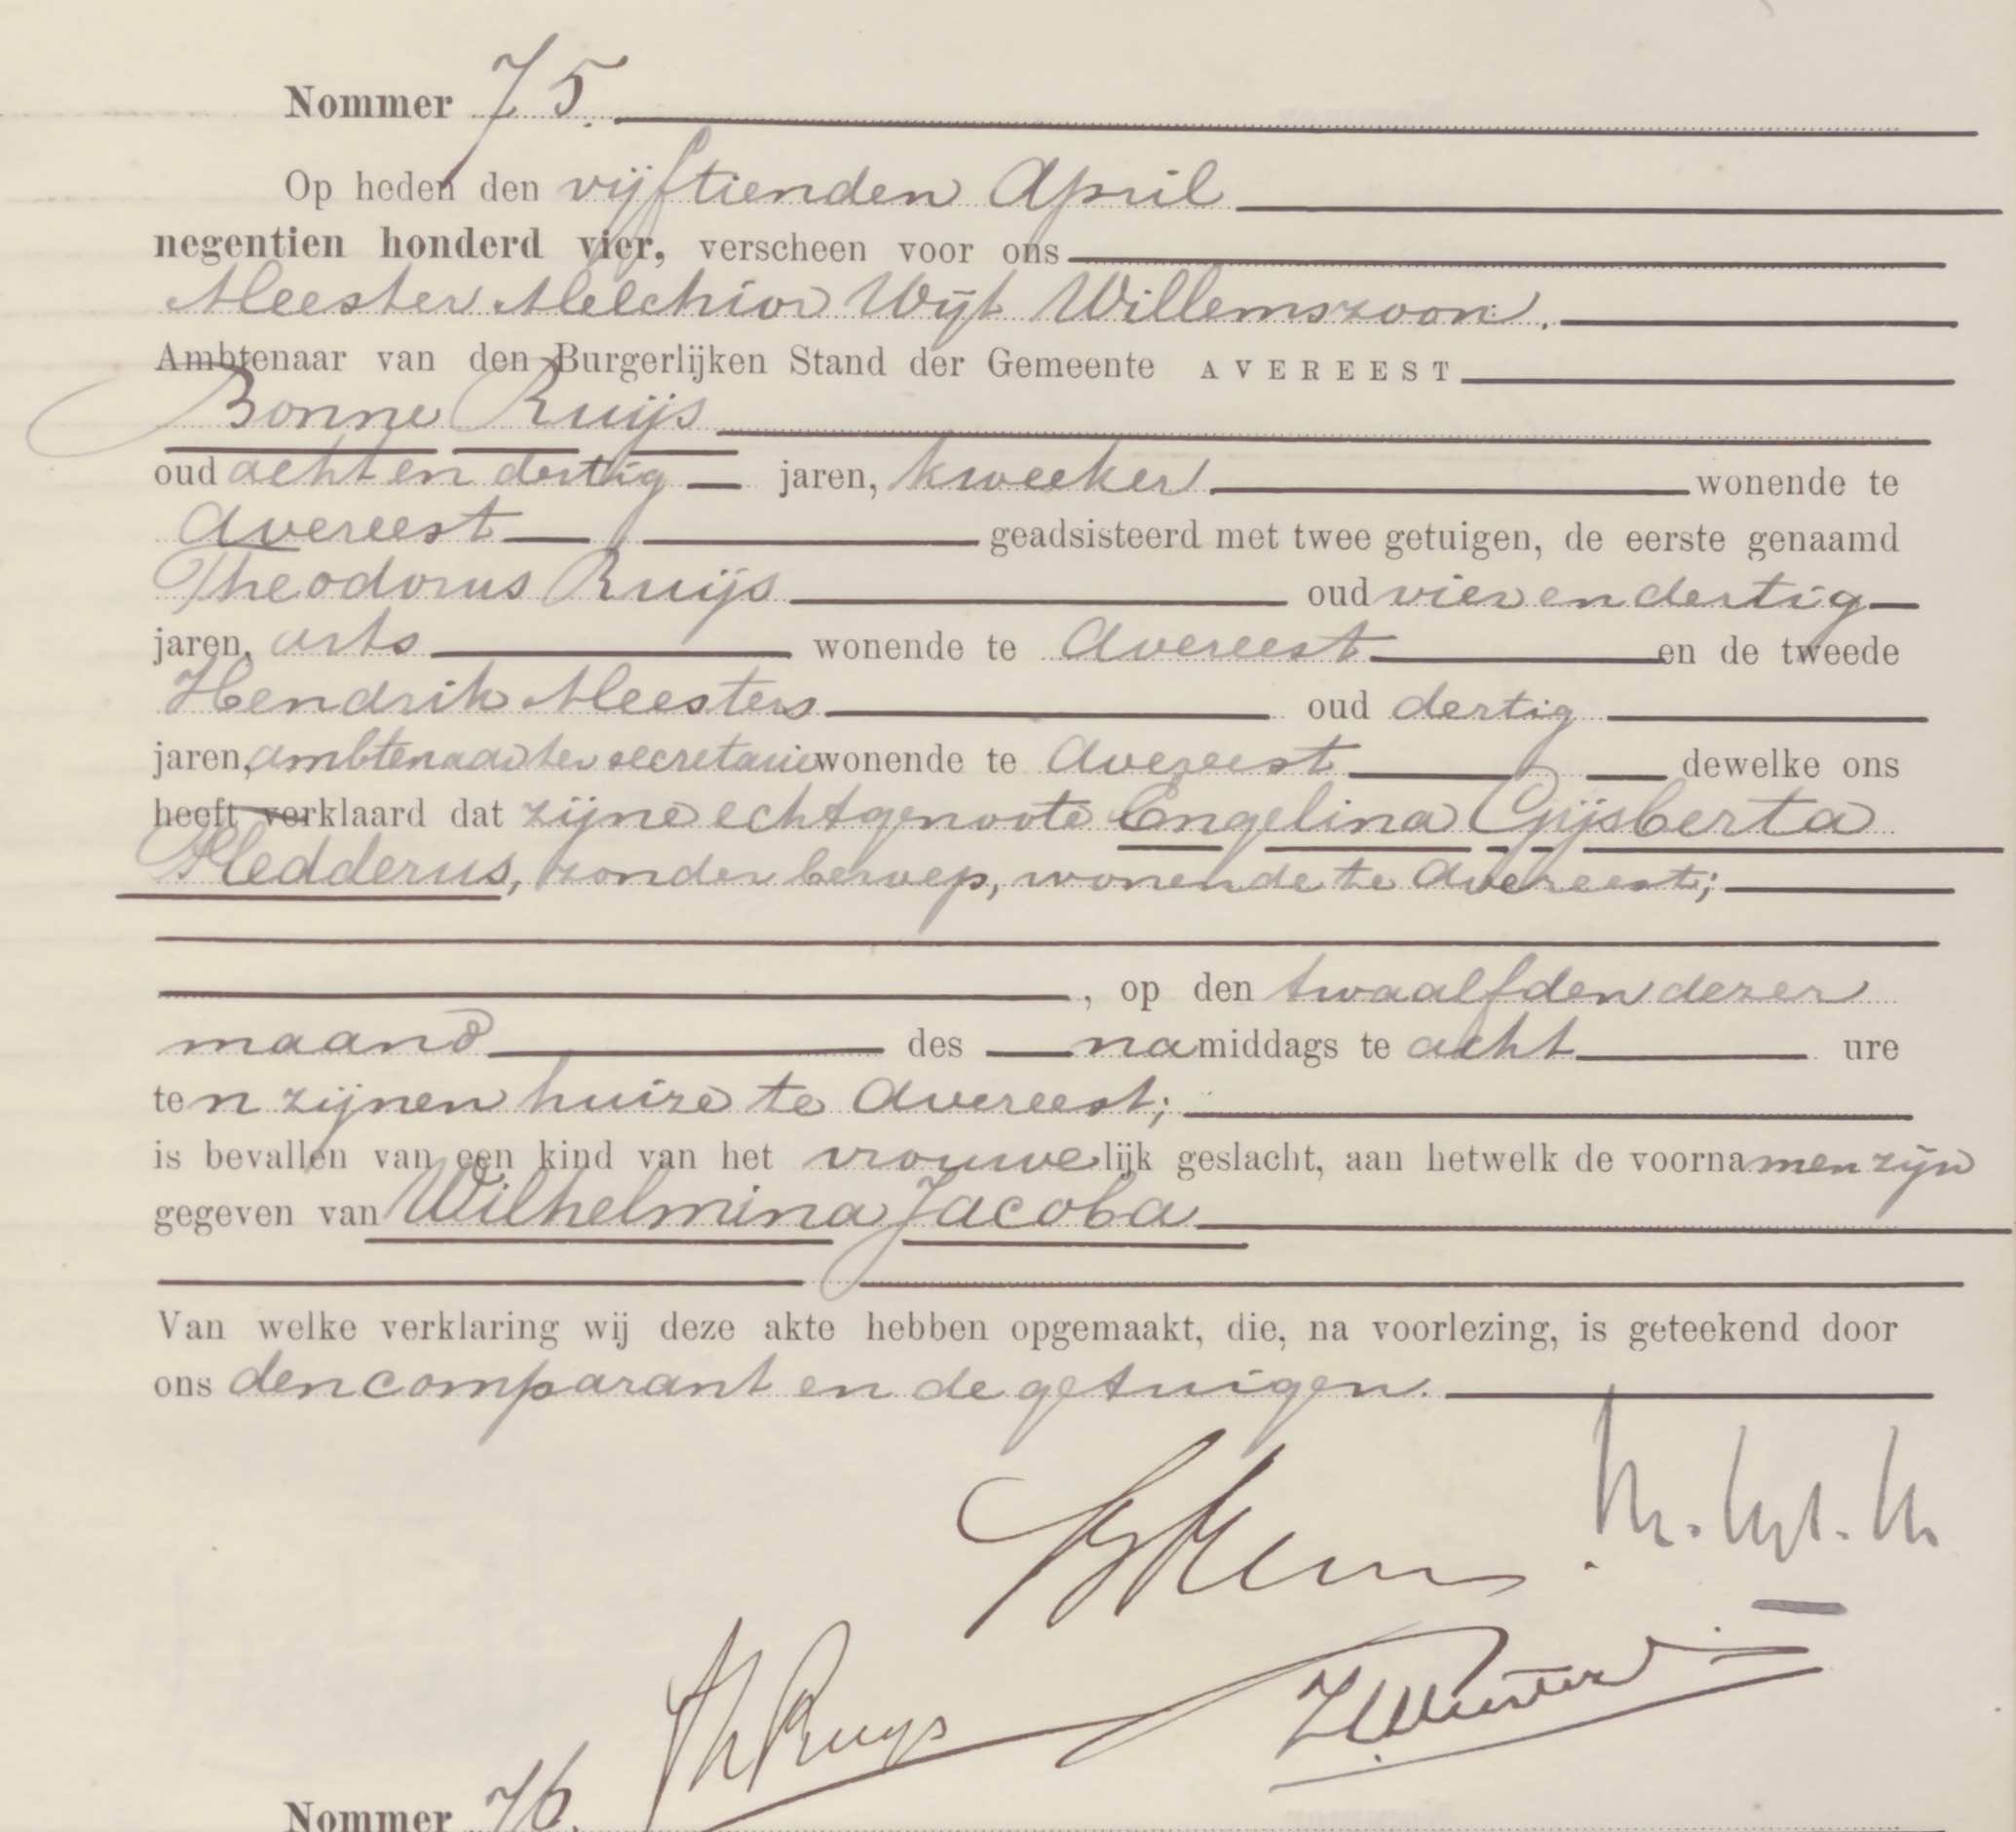 Nommer 75.
Op heden den vijftienden April
negentien honderd vier, verscheen voor ons
Meester Melchior Wijt Willemszoon.
Ambtenaar van den Burgerlijken Stand der Gemeente AVEREEST
Bonne Ruijs
oud acht en dertig jaren, kweeker wonende te
Avereest geadsisteerd met twee getuigen, de eerste genaamd
Theodorus Ruijs oud vier en dertig
jaren, arts wonende te Avereest en de tweede
Hendrik Meesters oud dertig
jaren, ambtenaar ter secretarie wonende te Avereest dewelke ons
heeft verklaard dat zijne echtgenoote Engelina Gijsberta
Fledderus, zonder beroep, wonende te Avereest;
, op den twaalfden dezer
maand des namiddags te acht ure
ten zijnen huize te Avereest;
is bevallen van een kind van het vrouwelijk geslacht, aan hetwelk de voornamen zijn
gegeven van Wilhelmina Jacoba
Van welke verklaring wij deze akte hebben opgemaakt, die, na voorlezing, is geteekend door
ons den comparant en de getuigen.
M. Wijt. W.
Th Ruys
HMeesters
Nommer 76.